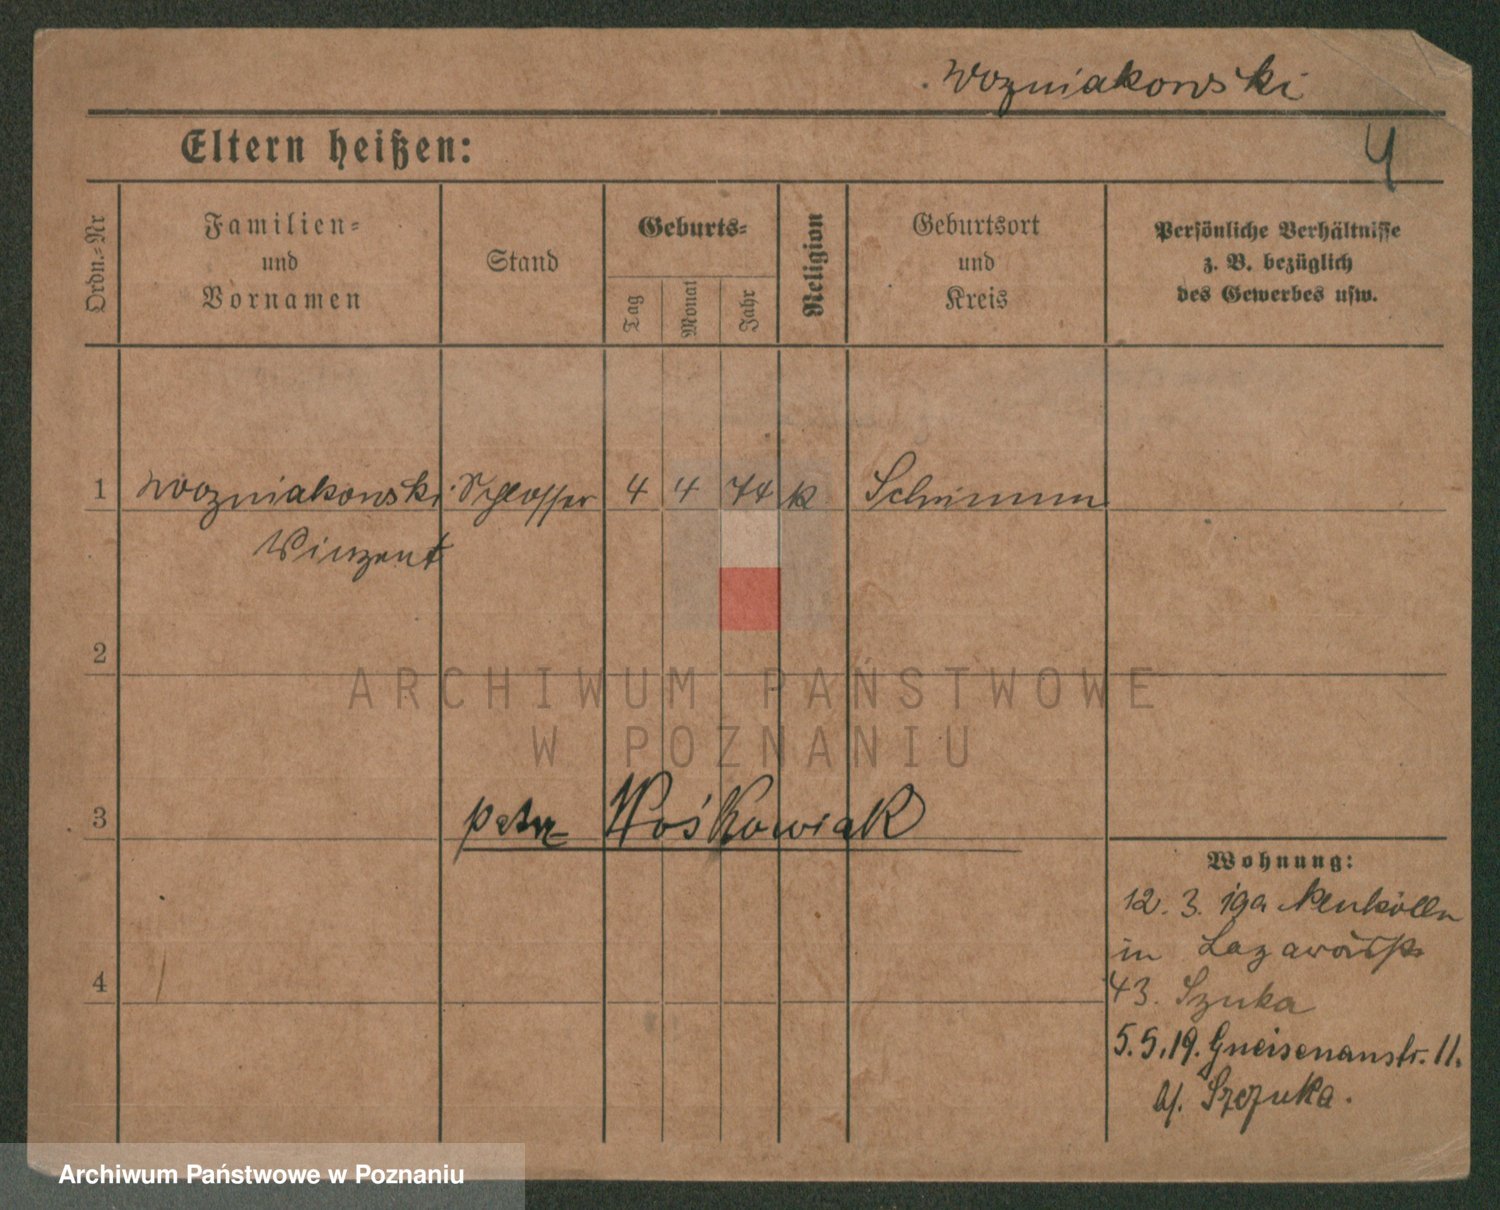 Wozniakowski
Eltern heißen:
4
Ordn.-Nr
Familien-
und
Vornamen
Stand
Geburts-
Tag
Monat
Jahr
Religion
Geburtsort
und
Kreis
Persönliche Verhältnisse
z. B. bezüglich
des Gewerbes usw.
1 Wozniakowski Schlosser 4 4 74 k Schrimm
Vinzent
2
ARCHIWUM PAŃSTWOWE
W POZNANIU
3
Wośkowiak
Wohnung:
12. 3. 19 a Neukölln
in
43. Szuka
4
5.5.19. Gneisenaustr. 11.
b/. Szczuka.
Archiwum Państwowe w Poznaniu